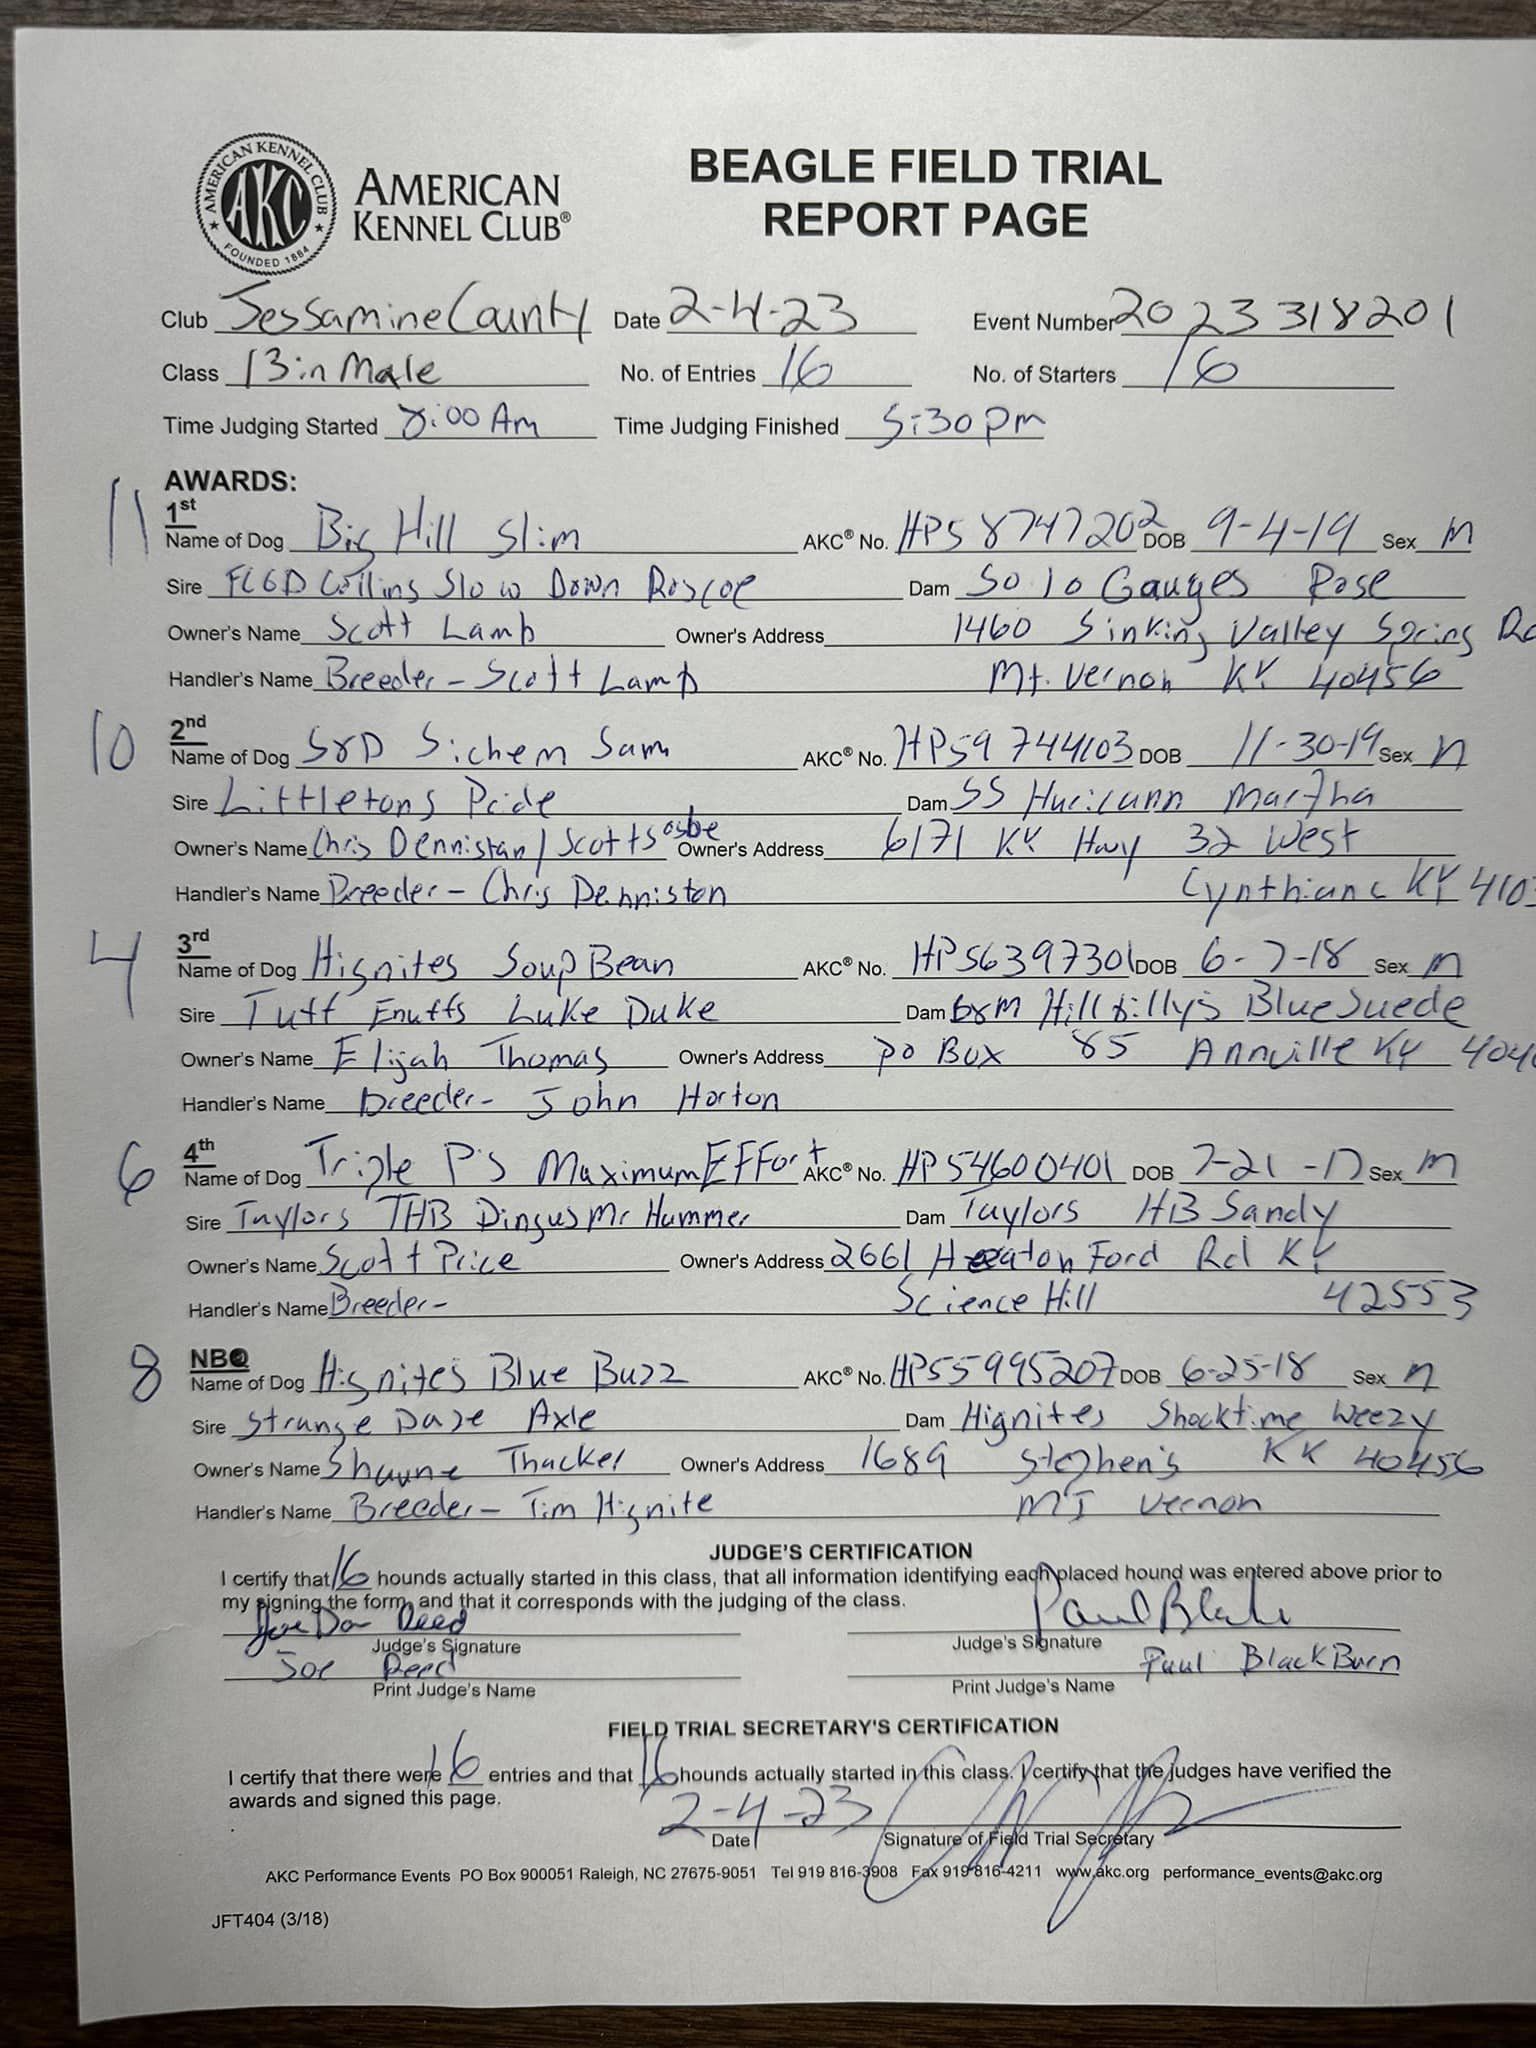 AMERICAN KENNEL CLUB
AKC
FOUNDED 1884
AMERICAN
KENNEL CLUB®
BEAGLE FIELD TRIAL
REPORT PAGE
Club Jessamine County Date 2-4-23 Event Number 2023318201
Class 13in Male No. of Entries 16 No. of Starters 16
Time Judging Started 8:00 Am Time Judging Finished 5:30 pm
AWARDS:
11 1st
Name of Dog Big Hill Slim AKC® No. HP58747202 DOB 9-4-19 Sex M
Sire FCGD Collins Slow Down Roscoe Dam Solo Gauges Rose
Owner's Name Scott Lamb Owner's Address 1460 Sinking Valley Spring
Handler's Name Breeder- Scott Lamb Mt. Vernon KY 40456
10 2nd
Name of Dog S&D Sichem Sam AKC® No. HP59744103 DOB 11-30-19 Sex M
Sire Littletons Pride Dam SS Huricann Martha
Owner's Name Chris Denniston/Scott Owner's Address 6171 KY Hwy 32 West
Handler's Name Breeder- Chris Denniston KY
4 3rd
Name of Dog Hignites Soup Bean AKC® No. HP56397301 DOB 6-7-18 Sex M
Sire Tuff Enuffs Luke Duke Dam B&M Hillbilly's Blue Suede
Owner's Name Elijah Thomas Owner's Address PO Box 85 Annville KY
Handler's Name Breeder- John Horton
6 4th
Name of Dog Triple P's Maximum EFFort AKC® No. HP54600401 DOB 7-21-17 Sex M
Sire Taylors THB Dingus Mr Hummer Dam Taylors HB Sandy
Owner's Name Scott Price Owner's Address 2661 Heaton Ford Rd KY
Handler's Name Breeder- Science Hill 42553
8 NBQ
Name of Dog Hignites Blue Buzz AKC® No. HP55995207 DOB 6-25-18 Sex M
Sire Strange Daze Axle Dam Hignites Shocktime Weezy
Owner's Name Shayne Thacker Owner's Address 1689 Stephens KY 40456
Handler's Name Breeder- Tim Hignite MT Vernon
JUDGE'S CERTIFICATION
I certify that 16 hounds actually started in this class, that all information identifying each placed hound was entered above prior to
my signing the form, and that it corresponds with the judging of the class.
Joe Don Reed Paul Blak
Judge's Signature Judge's Signature
Joe Reed Paul BlackBurn
Print Judge's Name Print Judge's Name
FIELD TRIAL SECRETARY'S CERTIFICATION
I certify that there were 16 entries and that 16 hounds actually started in this class. I certify that the judges have verified the
awards and signed this page.
2-4-23
Date Signature of Field Trial Secretary
AKC Performance Events PO Box 900051 Raleigh, NC 27675-9051 Tel 919 816-3908 Fax 919 816-4211 www.akc.org performance_events@akc.org
JFT404 (3/18)